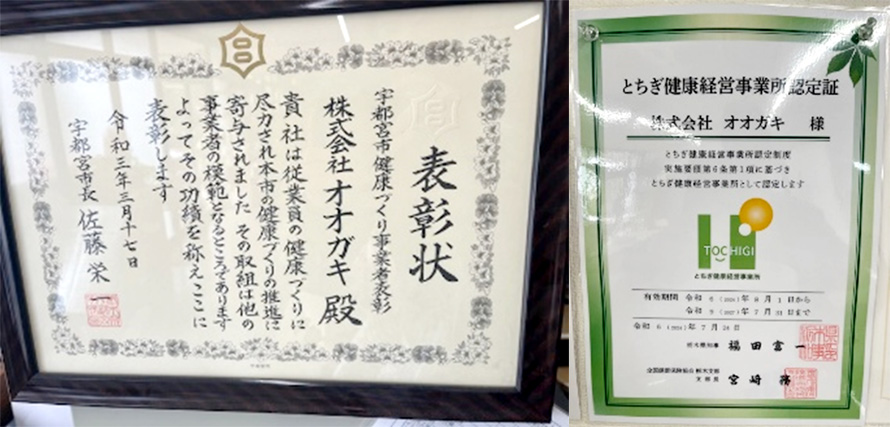 表彰状
宇都宮市健康づくり事業者表彰
株式会社オオガキ殿
貴社は従業員の健康づくりに
尽力され本市の健康づくりの推進に
寄与されました その取組は他の
事業者の模範となるところであります
よってその功績を称えここに
表彰します
令和三年三月十七日
宇都宮市長 佐藤栄
とちぎ健康経営事業所認定証
株式会社 オオガキ 様
とちぎ健康経営事業所認定制度
実施要領第6条第1項に基づき
とちぎ健康経営事業所として認定します
TOCHIGI
とちぎ健康経営事業所
有効期間 令和 6 (2024) 年 8 月 1 日から
令和 9 (2027) 年 7 月 31 日まで
令和 6 (2024) 年 7 月 26 日
栃木県知事 福田富一
全国健康保険協会 栃木支部
支部長 宮崎務